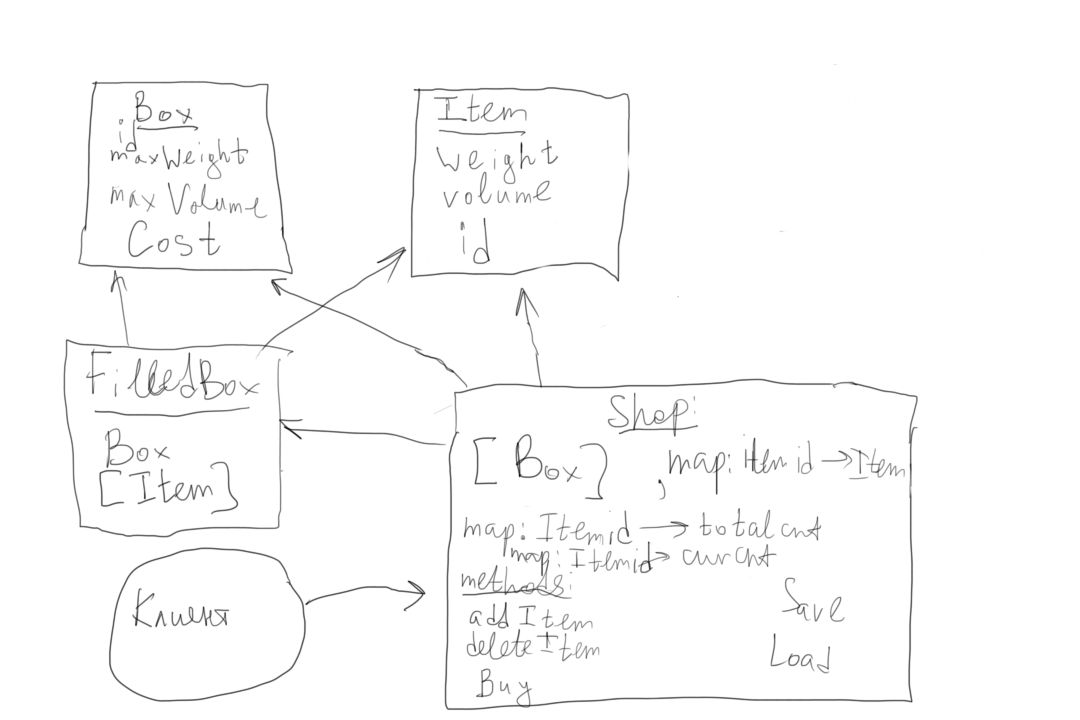 Box
id
maxWeight
maxVolume
Cost
Item
weight
volume
id
FilledBox
Box
[Item]
Shop:
[Box] , map: itemid → Item
map: Itemid → totalcnt
map: Itemid → curcnt
methods:
addItem
deleteItem
Buy
Save
Load
Клиент